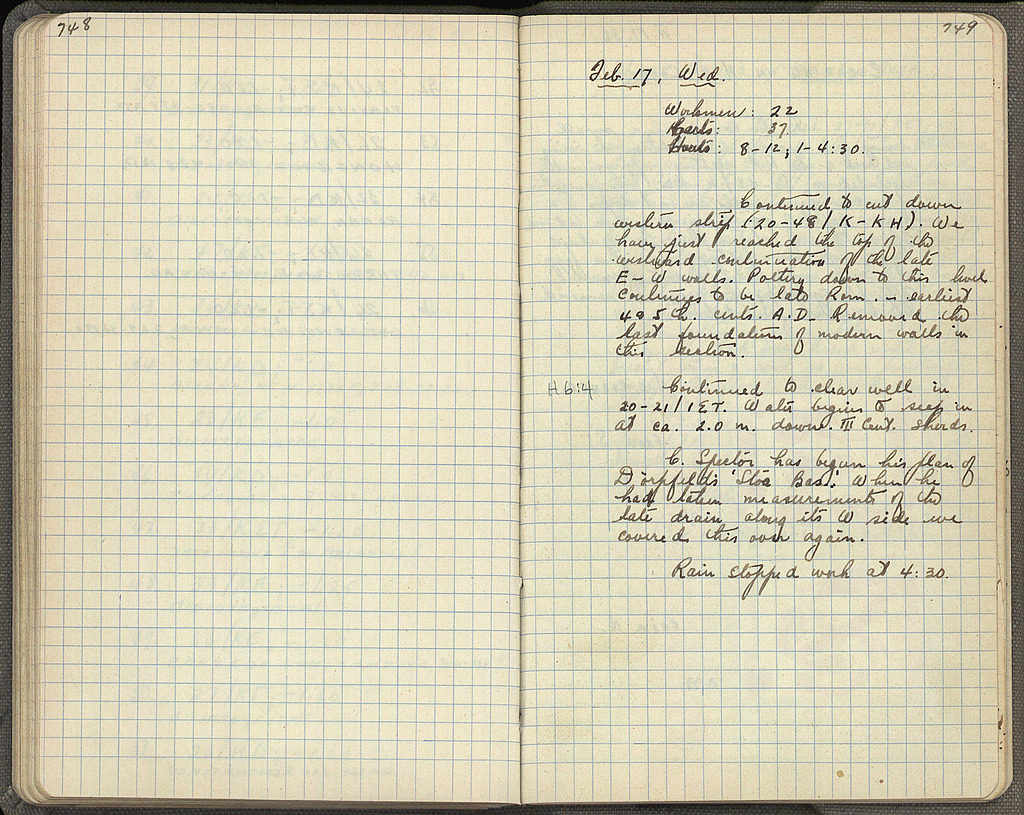 748
749
Feb. 17, Wed.
Workmen: 22
Carts: 37.
Hours: 8-12; 1-4:30.
Continued to cut down
western strip (20-48/K-KH). We
have just reached the top of the
westward continuation of the late
E-W walls. Pottery down to this level
continues to be late Rom. - earliest
4 & 5th. cents. A.D. Removed the
last foundations of modern walls in
this section.
H 6:4 Continued to clear well in
20-21/IET. Water begins to seep in
at ca. 2.0 m. down. III Cent. sherds.
C. Spector has begun his plan of
Dörpfeld's 'Stoa Bas.' When he
had taken measurements of the
late drain along its W side we
covered this over again.
Rain stopped work at 4:30.